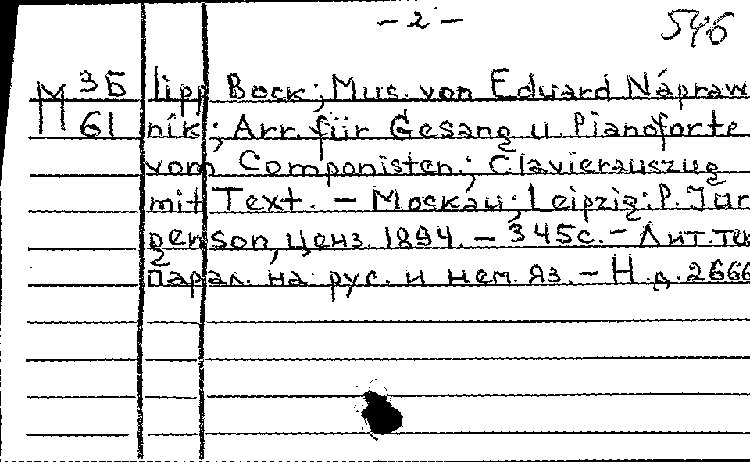 - 2 -
546
М 3Б lipp Bock; Mus. von Eduard Nápraw
61 ník; Arr. für Gesang u. Pianoforte
vom Componisten; Clavierauszug
mit Text. - Moskau; Leipzig: P. Jur
genson, ценз. 1894. - 345с. - Лит. те
парал. на рус. и нем. яз. - Н.д. 2666